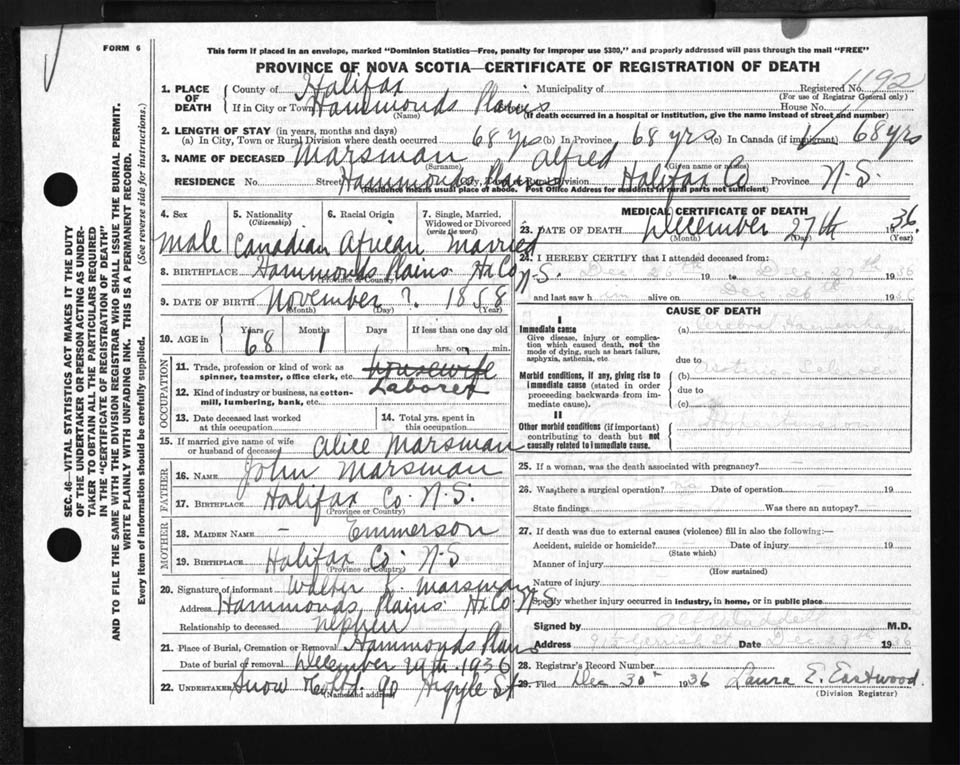 FORM 6
This form if placed in an envelope, marked "Dominion Statistics—Free, penalty for improper use $300," and properly addressed will pass through the mail "FREE"
PROVINCE OF NOVA SCOTIA—CERTIFICATE OF REGISTRATION OF DEATH
SEC. 46—VITAL STATISTICS ACT MAKES IT THE DUTY
OF THE UNDERTAKER OR PERSON ACTING AS UNDER-
TAKER TO OBTAIN ALL THE PARTICULARS REQUIRED
IN THE "CERTIFICATE OF REGISTRATION OF DEATH"
AND TO FILE THE SAME WITH THE DIVISION REGISTRAR WHO SHALL ISSUE THE BURIAL PERMIT.
WRITE PLAINLY WITH UNFADING INK. THIS IS A PERMANENT RECORD.
Every item of information should be carefully supplied. (See reverse side for instructions.)
1. PLACE OF DEATH County of Halifax Municipality of Registered No. 1192
(For use of Registrar General only)
If in City or Town Hammonds Plains House No.
(Name) (If death occurred in a hospital or institution, give the name instead of street and number)
2. LENGTH OF STAY (in years, months and days)
(a) In City, Town or Rural Division where death occurred 68 yrs (b) In Province 68 yrs (c) In Canada (if immigrant) 68 yrs
3. NAME OF DECEASED Marsman Alfred
(Surname) (Given name or names)
RESIDENCE No. Street Hammonds Plains City, Town or Rural Division Halifax Co Province N.S.
(Residence means usual place of abode. Post Office Address for residents in rural parts not sufficient)
4. Sex Male
5. Nationality (Citizenship) Canadian
6. Racial Origin African
7. Single, Married, Widowed or Divorced (write the word) Married
8. BIRTHPLACE Hammonds Plains Hx Co N.S.
(Province or Country)
9. DATE OF BIRTH November ?. 1858
(Month) (Day)
10. AGE in Years 68 Months 1 Days If less than one day old hrs. or min.
OCCUPATION
11. Trade, profession or kind of work as spinner, teamster, office clerk, etc. housewife
Laborer
12. Kind of industry or business, as cotton-mill, lumbering, bank, etc.
13. Date deceased last worked at this occupation
14. Total yrs. spent in this occupation
15. If married give name of wife or husband of deceased Alice Marsman
FATHER
16. NAME John Marsman
17. BIRTHPLACE Halifax Co. N.S.
(Province or Country)
MOTHER
18. MAIDEN NAME – Emmerson
19. BIRTHPLACE Halifax Co. N-S
(Province or Country)
20. Signature of informant Walter J. Marsman
Address Hammonds Plains Hx Co. N-S
Relationship to deceased nephew
21. Place of Burial, Cremation or Removal Hammonds Plains
Date of burial or removal December 29th 1936
22. Undertaker Snow & Co Ltd. 90 Argyle St
(Name and address)
MEDICAL CERTIFICATE OF DEATH
23. DATE OF DEATH December 27th 1936
(Month) (Day) (Year)
24. I HEREBY CERTIFY that I attended deceased from:
Dec 26th 19 to Dec 27th 1936
and last saw him alive on Dec 26th 1936
CAUSE OF DEATH
I
Immediate cause
Give disease, injury or complication which caused death, not the mode of dying, such as heart failure, asphyxia, asthenia, etc
(a) Cerebral Haemorrhage
due to
Morbid conditions, if any, giving rise to immediate cause (stated in order proceeding backwards from immediate cause).
(b)
due to
(c)
II
Other morbid conditions (if important) contributing to death but not causally related to immediate cause.
25. If a woman, was the death associated with pregnancy?
26. Was there a surgical operation? no Date of operation 19
State findings Was there an autopsy?
27. If death was due to external causes (violence) fill in also the following:—
Accident, suicide or homicide? Date of injury 19
(State which)
Manner of injury
(How sustained)
Nature of injury
Specify whether injury occurred in industry, in home, or in public place
Signed by Waddell M.D.
Address Gerrish St Date Dec 29th 1936
28. Registrar's Record Number
29. Filed Dec 30th 1936 Laura E. Eastwood.
(Division Registrar)